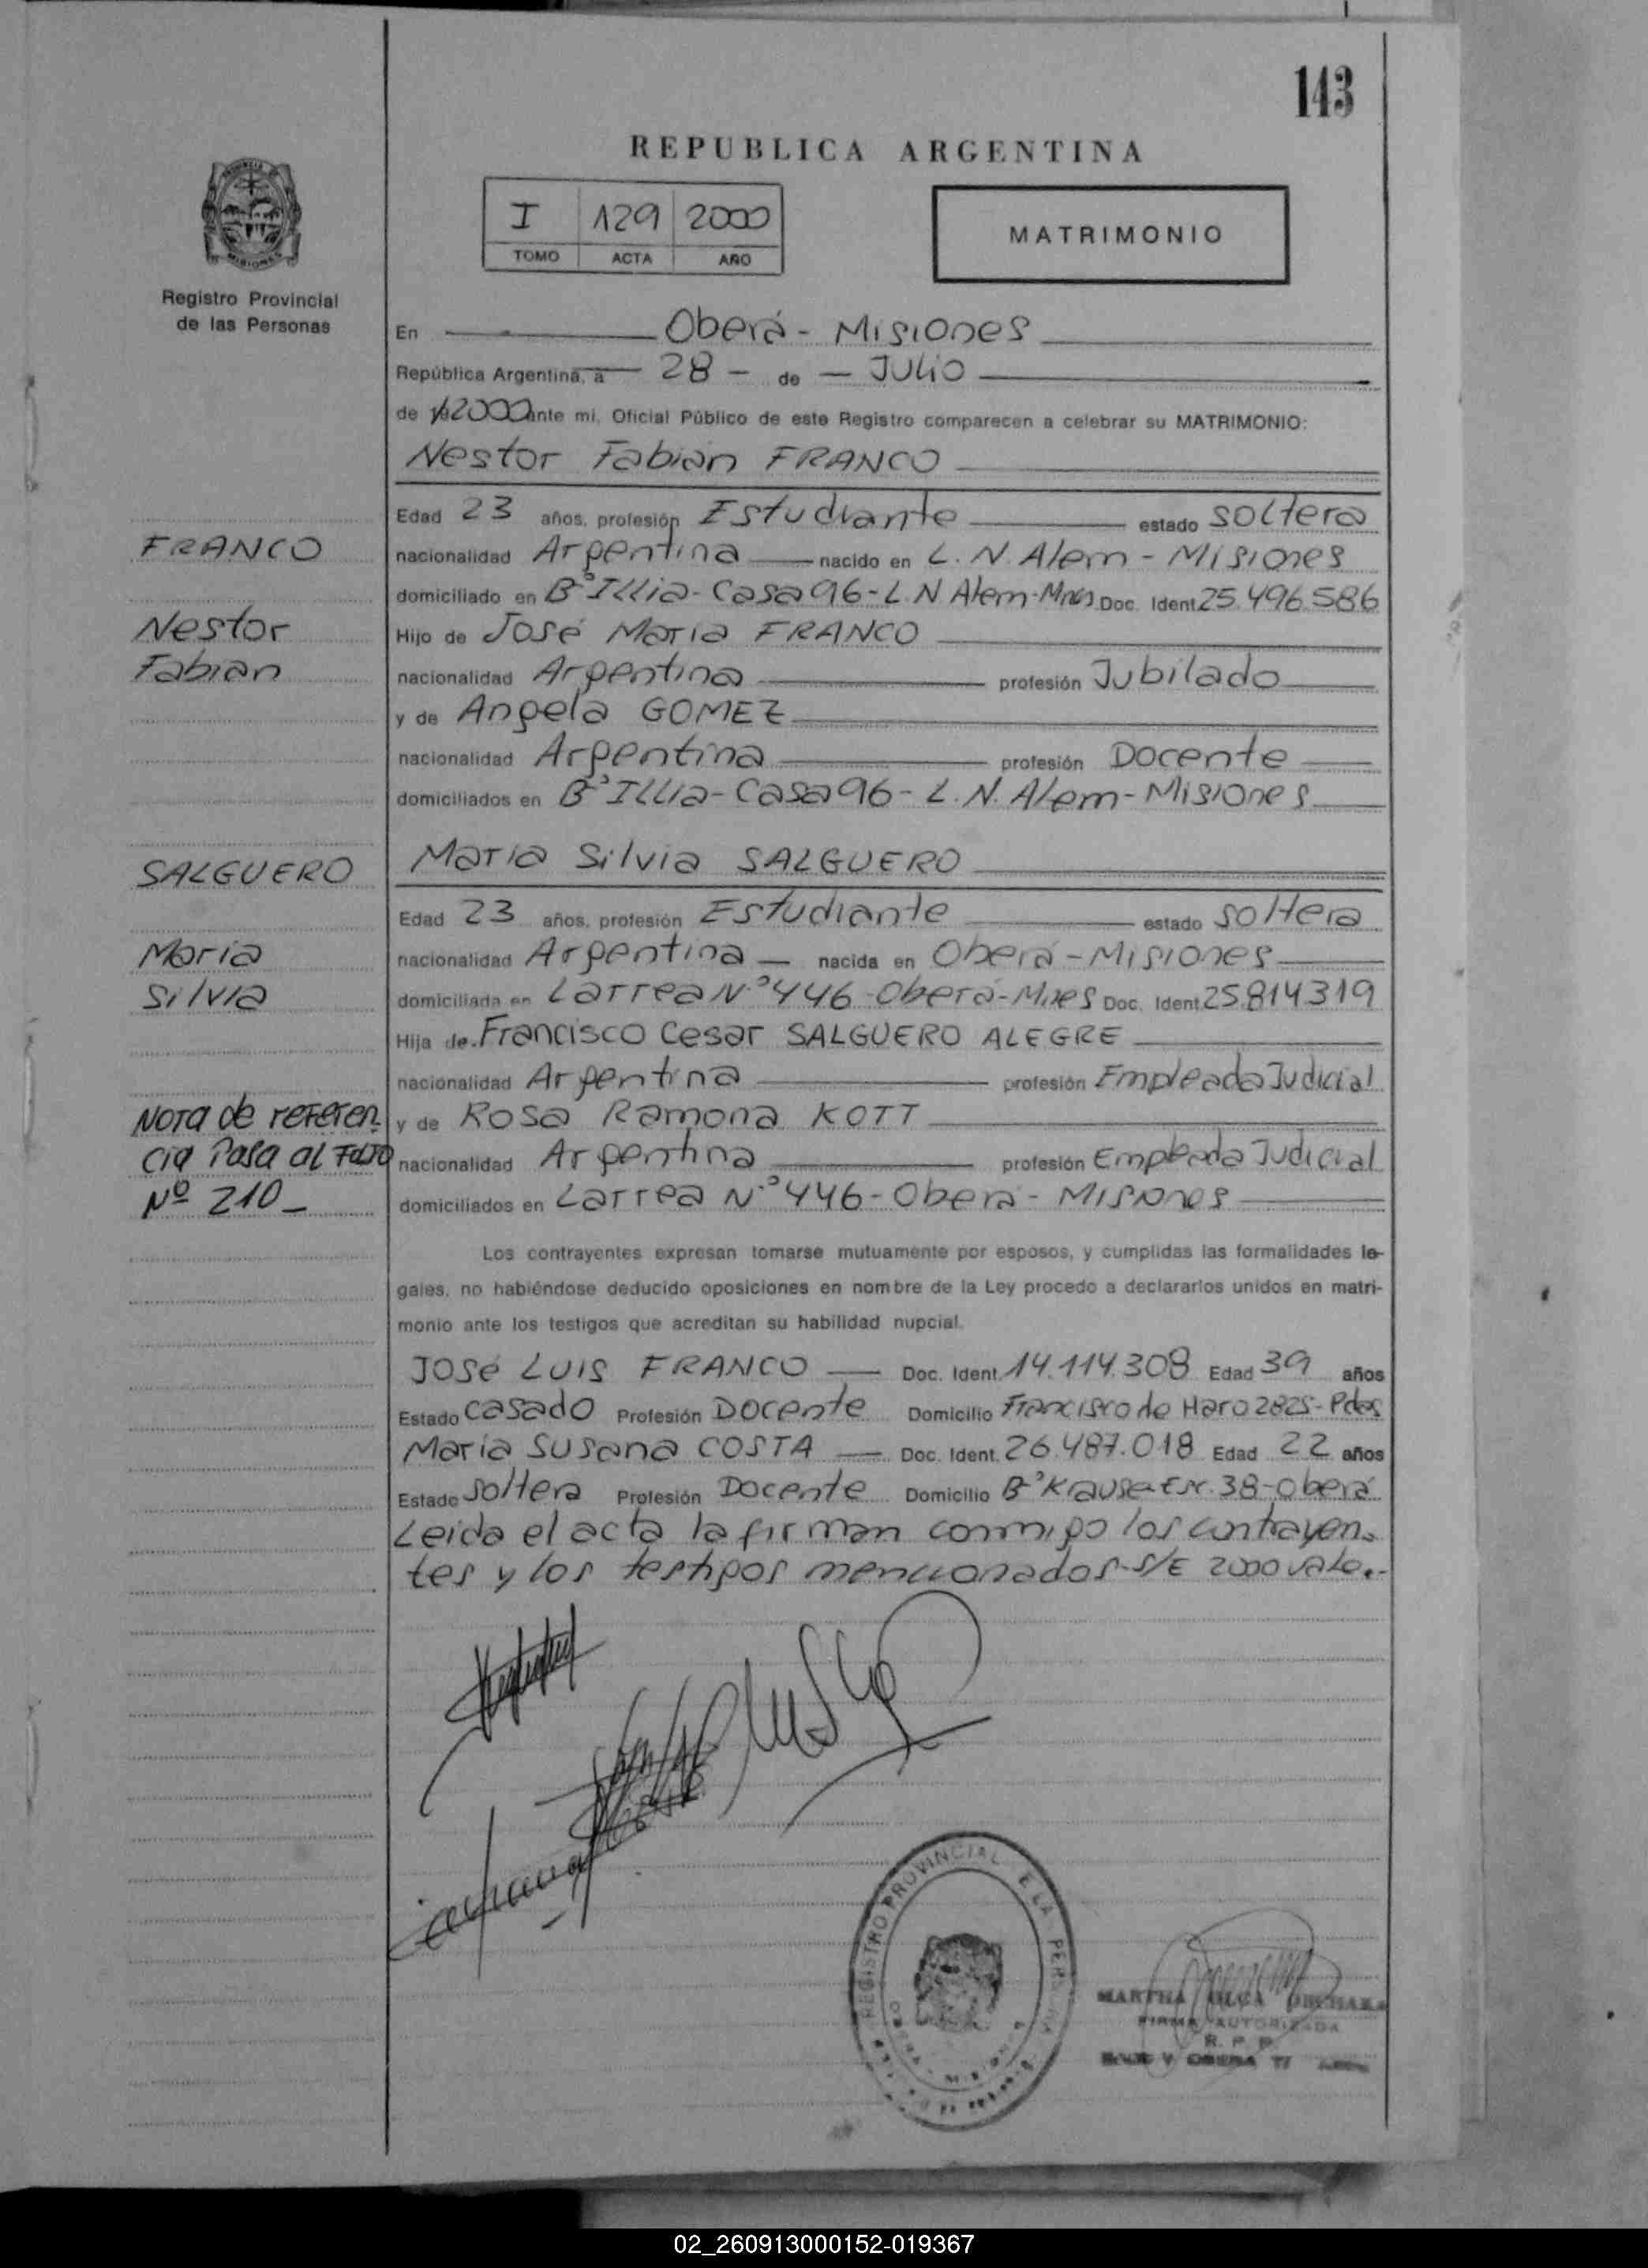 143
REPUBLICA ARGENTINA
I 129 2000
TOMO ACTA AÑO
MATRIMONIO
Registro Provincial
de las Personas
En Oberá - Misiones
República Argentina, a 28 - de - Julio
de 2000 ante mi, Oficial Público de este Registro comparecen a celebrar su MATRIMONIO:
Nestor Fabian FRANCO
Edad 23 años, profesión Estudiante estado soltero
FRANCO
nacionalidad Argentina nacido en L. N. Alem - Misiones
domiciliado en B° Illia - Casa 96 - L. N Alem - Mnes Doc. Ident. 25.496.586
Nestor
Hijo de José Maria FRANCO
Fabian
nacionalidad Argentina profesión Jubilado
y de Angela GOMEZ
nacionalidad Argentina profesión Docente
domiciliados en B° Illia - Casa 96 - L. N. Alem - Misiones
SALGUERO
Maria Silvia SALGUERO
Edad 23 años, profesión Estudiante estado soltera
Maria
nacionalidad Argentina - nacida en Oberá - Misiones
Silvia
domiciliada en Larrea N° 446 - Oberá - Mnes Doc. Ident. 25.814319
Hija de Francisco Cesar SALGUERO ALEGRE
nacionalidad Argentina profesión Empleada Judicial
Nota de referen
y de Rosa Ramona KOTT
cia Pasa al Folio
nacionalidad Argentina profesión Empleada Judicial
Nº 210 -
domiciliados en Larrea N° 446 - Oberá - Misiones
Los contrayentes expresan tomarse mutuamente por esposos, y cumplidas las formalidades le-
gales, no habiéndose deducido oposiciones en nombre de la Ley procedo a declararlos unidos en matri-
monio ante los testigos que acreditan su habilidad nupcial.
José Luis FRANCO - Doc. Ident. 14.114.308 Edad 39 años
Estado Casado Profesión Docente Domicilio Francisco de Haro 2825 - Pdas
Maria Susana COSTA - Doc. Ident. 26.487.018 Edad 22 años
Estado Soltera Profesión Docente Domicilio B° Krause Esc. 38 - Oberá
Leida el acta la firman conmigo los contrayen-
tes y los testigos mencionados - S/E 2000 vale.-
REGISTRO PROVINCIAL
MARTHA OLGA
FIRMA AUTORIZADA
R. P. P.
02_260913000152-019367